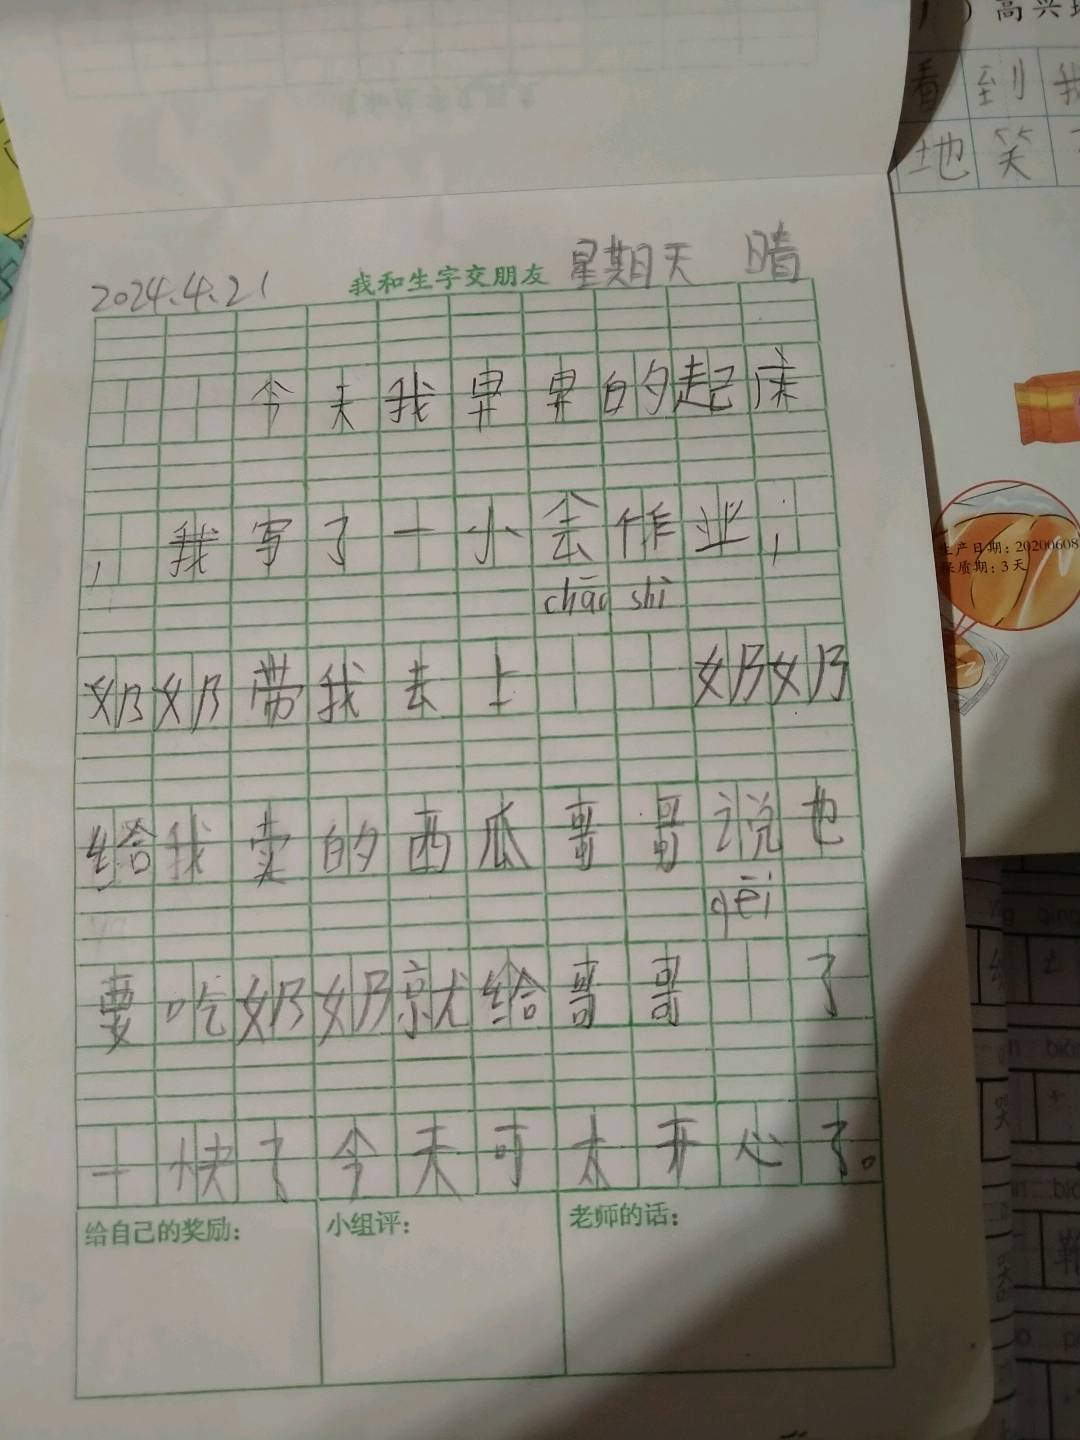 2024.4.21 我和生字交朋友 星期天 晴
今天我早早的起床
,我写了一小会作业,
chāo shì
奶奶带我去上 奶奶
给我卖的西瓜哥哥说也
qēi
要吃奶奶就给哥哥 了
一快了今天可太开心了。
给自己的奖励: 小组评: 老师的话:
高兴
看到我
地笑
生产日期:20200608
保质期:3天